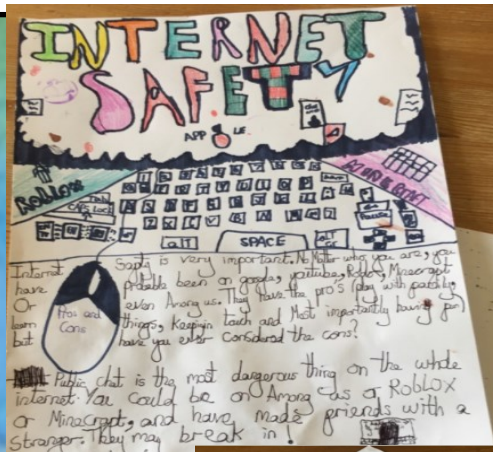 INTERNET
SAFETY
APP LE
Roblox
Tab
Caps Lock
Pause
alt
SPACE
alt
Gr
Internet Safty is very important. No Matter who you are, you
have probable been on google, youtube, Roblox, Minecrapt
Or even Among us. They have the pro's (play with family,
learn things, Keepin in touch and Most importantly having fun)
but have you ever Considored the cons?
Pros and
Cons
Public chat is the most dangerous thing on the whole
internet. You could be on Among us or Roblox
or Minacrapt, and have made friends with a
Stranger. They may break in!